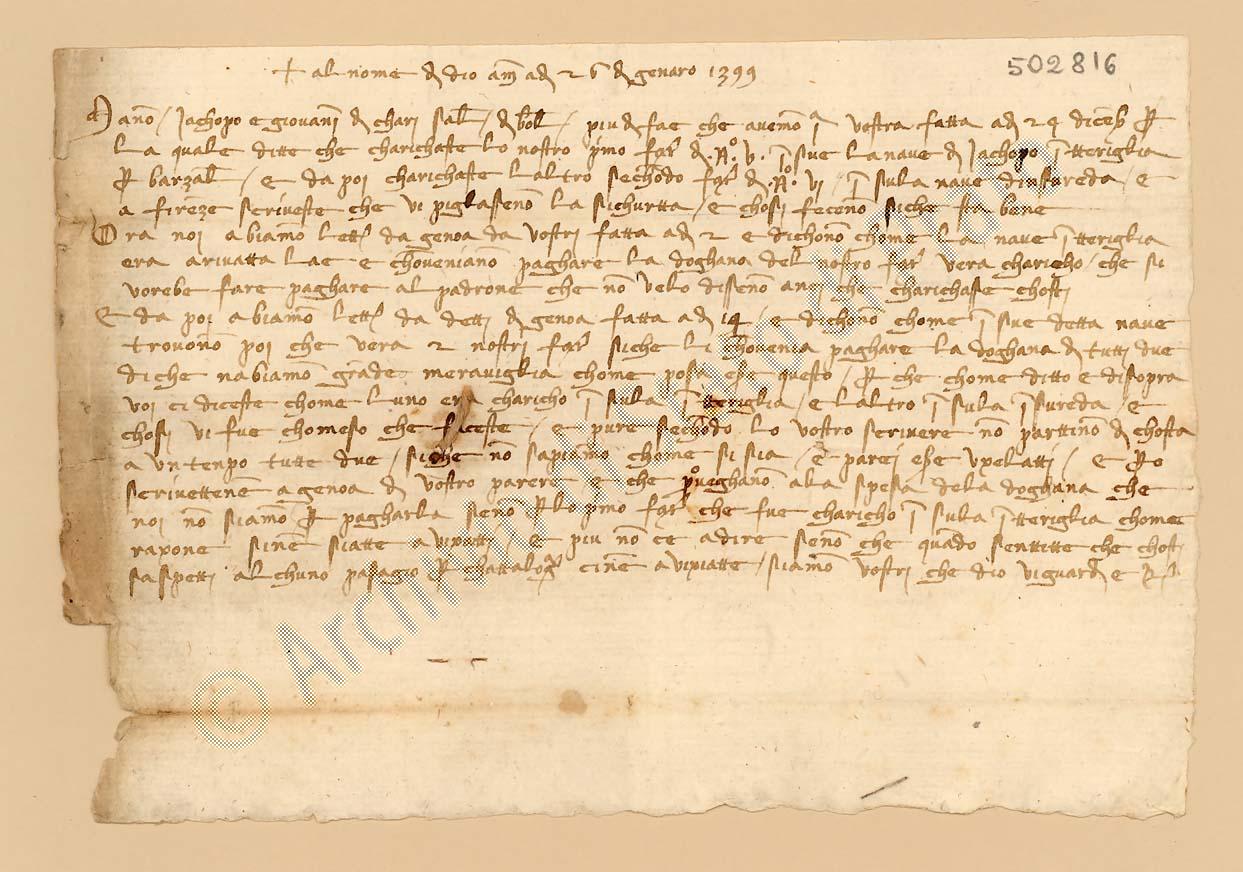 502816
+ al nome di dio am̄ adi 26 di genaro 1399
Yano / Jachopo e giovanj di chari sal / di bol / piu di fae che avemo j vostra fatta adi 24 diceb̄ per
la quale ditte che charichaste lo nostro p̄mo far di N.° V. ī sue la nave di Jachopo Īteriglia
per barzal / e da poi charichaste l altro sechondo far di N.° VI / ī sula nave d Insureda / e
a firēze scriveste che vi piglasseno la sichurtta / e chosi feceno siche sta bene
Ora noi abiamo lett da genoa da vostri fatta adi 2 e dichono chome la nave Īteriglia
era arivatta lae e choveniano paghare la doghana del nostro far vera charicho / che si
vorebe fare paghare al padrone che nō velo disseno anzi che charichaste chosti
E da poi abiamo lett da detti di genoa fatta adi 14 / e dichono chome ī sue detta nave
trovono poi che vera 2 nostri far siche li chovenia paghare la doghana di tutti due
di che nabiamo grāde meraviglia chome posa ese questo / per che chome ditto e disopra
voi ci diceste chome luno era charicho ī sula Īteriglia / e laltro ī sula Īsureda / e
chosi vi fue chomeso che faceste / e pure sechondo lo vostro scrivere nō parttino di chosta
a un tenpo tutte due / siche nō sapiamo chome si sia / e parci ese / e però
scrivettene a genoa di vostro parere e che proveghano ala spesa dela doghana che
noi nō siamo per pagharla seno per lo p̄mo far che fue charicho ī sula Īteriglia chome
raxone sinē siatte avixatti / e piu nō ce a dire senō che quādo sentitte che chosti
saspetti alchuno pasagio per chattalo cinē avixiatte / siamo vostri che dio vi guardi e
© Archivio di Stato di Prato